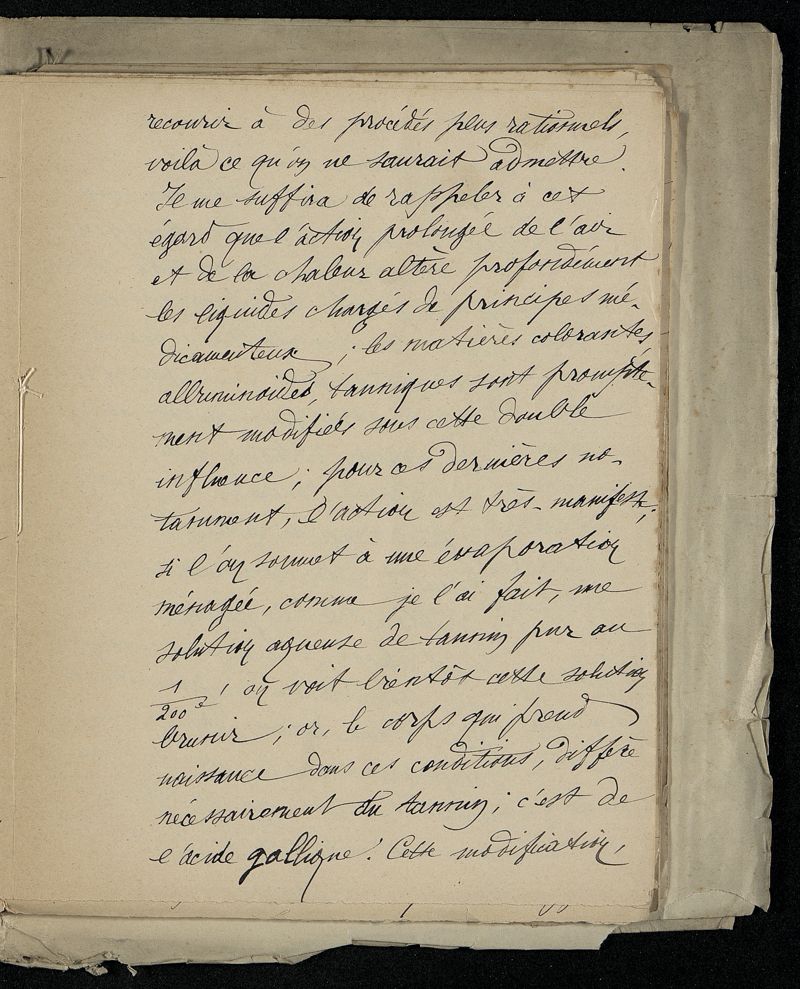 recourir à des procédés plus rationnels,
voilà ce qu'on ne saurait admettre.
Il me suffira de rappeler à cet
égard que l'action prolongée de l'air
et de la chaleur altère profondément
les liquides chargés de principes mé-
dicamenteux ; les matières colorantes,
albuminoïdes, tanniques sont prompte-
ment modifiées sous cette double
influence ; pour ces dernières no-
tamment, l'action est très-manifeste ;
si l'on soumet à une évaporation
ménagée, comme je l'ai fait, une
solution aqueuse de tannin pur au
1/200e, on voit bientôt cette solution
brunir ; or, le corps qui prend
naissance dans ces conditions, diffère
nécessairement du tannin ; c'est de
l'acide gallique. Cette modification,